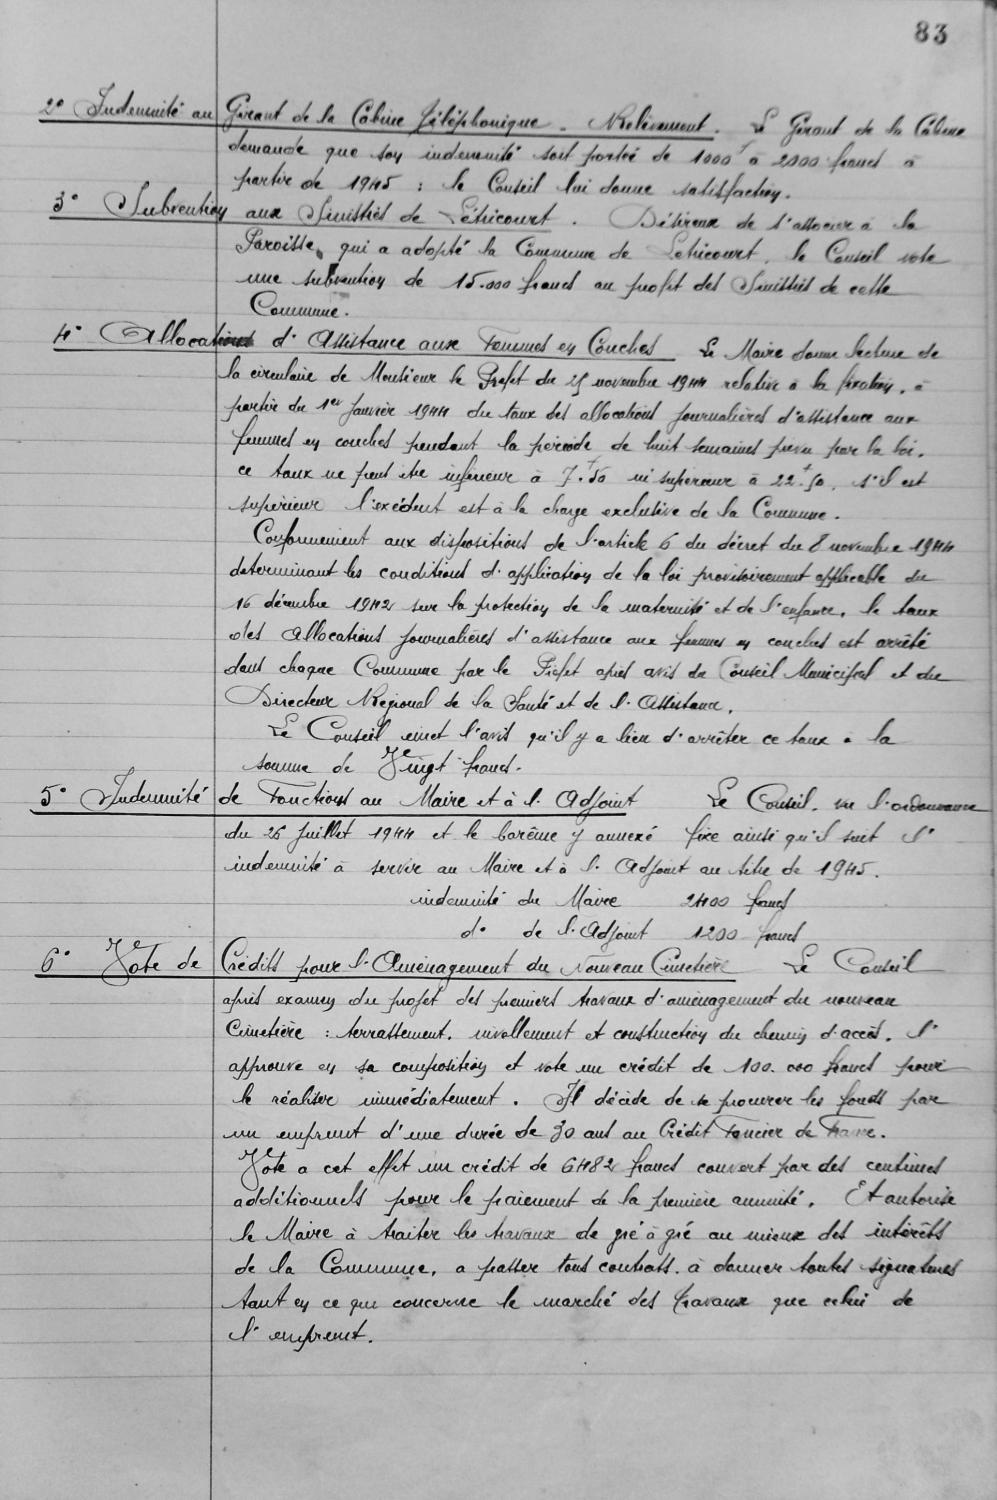 83
2° Indemnité au Gérant de la Cabine Téléphonique. Relèvement. Le Gérant de la Cabine
demande que son indemnité soit portée de 1000f à 2000 francs à
partir de 1945 : le Conseil lui donne satisfaction.
3° Subvention aux Sinistrés de Létricourt. Désireux de s'associer à la
Paroisse, qui a adopté la Commune de Létricourt, le Conseil vote
une subvention de 15.000 francs au profit des Sinistrés de cette
Commune.
4° Allocations d'Assistance aux Femmes en Couches Le Maire donne lecture de
la circulaire de Monsieur le Préfet du 25 novembre 1944 relative à la fixation, à
partir du 1er Janvier 1944 du taux des allocations journalières d'assistance aux
femmes en couches pendant la période de huit semaines prévu par la loi.
ce taux ne peut être inférieur à 7f.50 ni supérieur à 22f.50, s'il est
supérieur l'excédent est à la charge exclusive de la Commune.
Conformément aux dispositions de l'article 6 du décret du 8 novembre 1944
déterminant les conditions d'application de la loi provisoirement applicable du
16 décembre 1942 sur la protection de la maternité et de l'enfance, le taux
des allocations journalières d'assistance aux femmes en couches est arrêté
dans chaque Commune par le Préfet après avis du Conseil Municipal et du
Directeur Régional de la Santé et de l'Assistance.
Le Conseil émet l'avis qu'il y a lieu d'arrêter ce taux à la
somme de Vingt francs.
5° Indemnité de Fonctions au Maire et à l'Adjoint Le Conseil, vu l'ordonnance
du 26 Juillet 1944 et le barême y annexé fixe ainsi qu'il suit l'
indemnité à servir au Maire et à l'Adjoint au titre de 1945.
indemnité du Maire 2400 francs
d° de l'Adjoint 1200 francs
6° Vote de Crédits pour l'Aménagement du Nouveau Cimetière Le Conseil
après examen du projet des premiers travaux d'aménagement du nouveau
Cimetière : terrassement, nivellement et construction du chemin d'accès, l'
approuve en sa composition et vote un crédit de 100.000 francs pour
le réaliser immédiatement. Il décide de se procurer les fonds par
un emprunt d'une durée de 30 ans au Crédit Foncier de France.
Vote a cet effet un crédit de 6482 francs couvert par des centimes
additionnels pour le paiement de la première annuité. Et autorise
le Maire à traiter les travaux de gré à gré au mieux des intérêts
de la Commune, a passer tous contrats, à donner toutes signatures
tant en ce qui concerne le marché des travaux que celui de
l'emprunt.